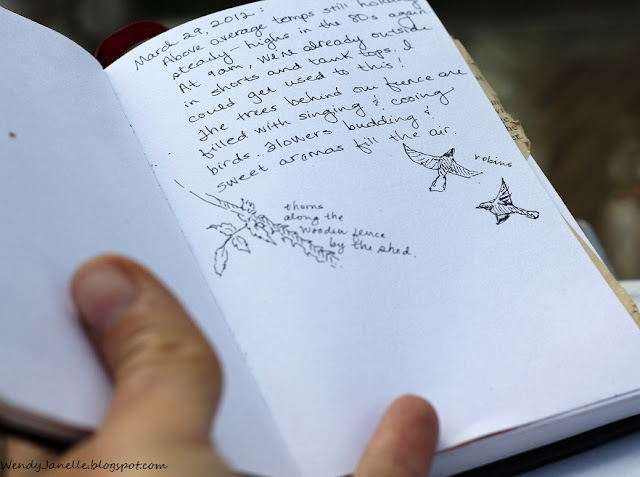 March 29, 2012:
Above average temps still holding
steady-highs in the 80s again
At 9am, we're already outside
in shorts and tank tops. I
could get used to this!
The trees behind our fence are
filled with singing & cooing
birds. Flowers budding &
sweet aromas fill the air.
robins
thorns
along the
wooden fence
by the shed.
WendyJanelle.blogspot.com